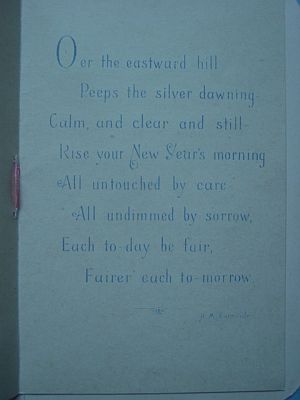 Oer the eastward hill
Peeps the silver dawning
Calm, and clear and still
Rise your New Year's morning
All untouched by care
All undimmed by sorrow,
Each to-day be fair,
Fairer each to-morrow.